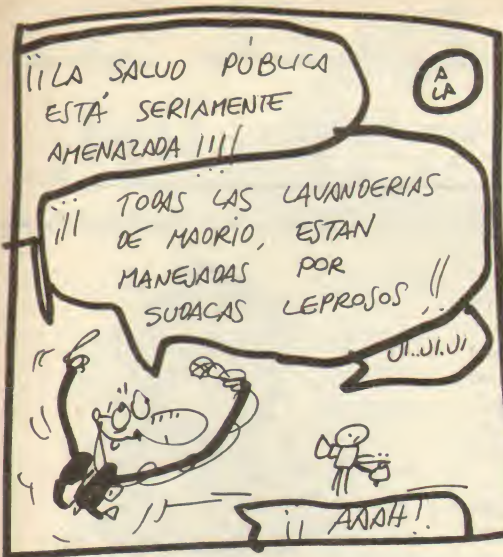 ¡¡LA SALUD PÚBLICA
ESTÁ SERIAMENTE
AMENAZADA !!!!
A
LA
¡¡¡ TODAS LAS LAVANDERIAS
DE MADRID, ESTAN
MANEJADAS POR
SUDACAS LEPROSOS !!
JI..JI.JI
¡¡ AAAH!.